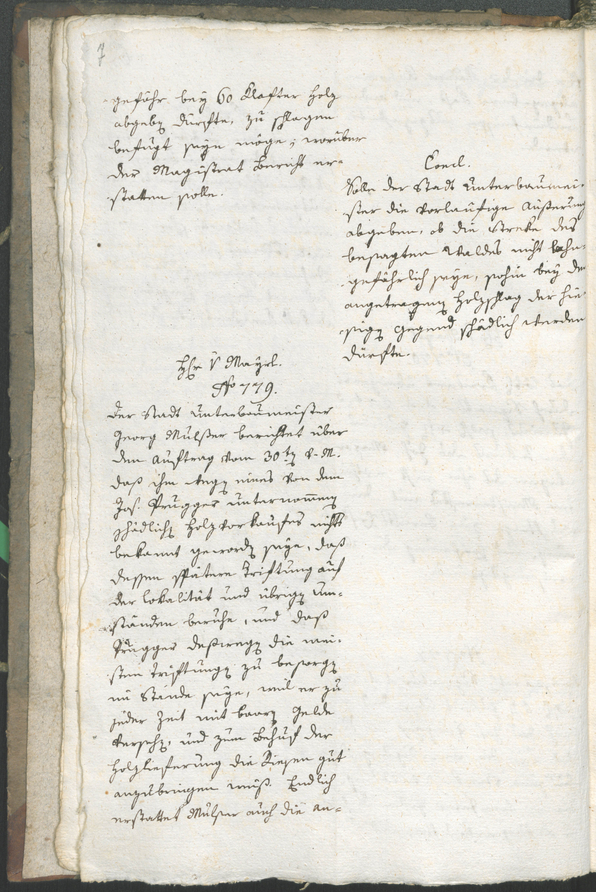 7
gefähr bey 60 Klafter Holz
abgebẽ dürfte, zu schlagen
befugt seyn möge; worüber
der Magistrat Bericht er-
statten solle.
Concl.
Solle der Stadt Unterbaumei-
ster die vorläufige Äußerung
abgeben, ob die Strecke des
besagten Waldes nicht lahn-
gefährlich seye, sohin bey dem
angetragenen Holzschlag der hie-
sigen Gegend schädlich werden
dürfte.
Hr v Mayrl.
No 779.
Der Stadt Unterbaumeister
Georg Mulser berichtet über
den Auftrag vom 30ten v. M.
daß ihm wegen eines von dem
Jos. Prugger unternommenen
schädlichen Holzvorkaufes nichts
bekannt geworden seye, daß
dessen spätere Triftung auf
der Lokalität und übrigen Um-
ständen beruhe, und daß
Prugger deßwegen die mei-
sten Triftungen zu besorgen
im Stande seye, weil er zu
jeder Zeit mit baaren Gelde
versehen, und zum Behuf der
Holzlieferung die Riesen gut
anzubringen weiß. Endlich
erstattet Mulser auch die an-